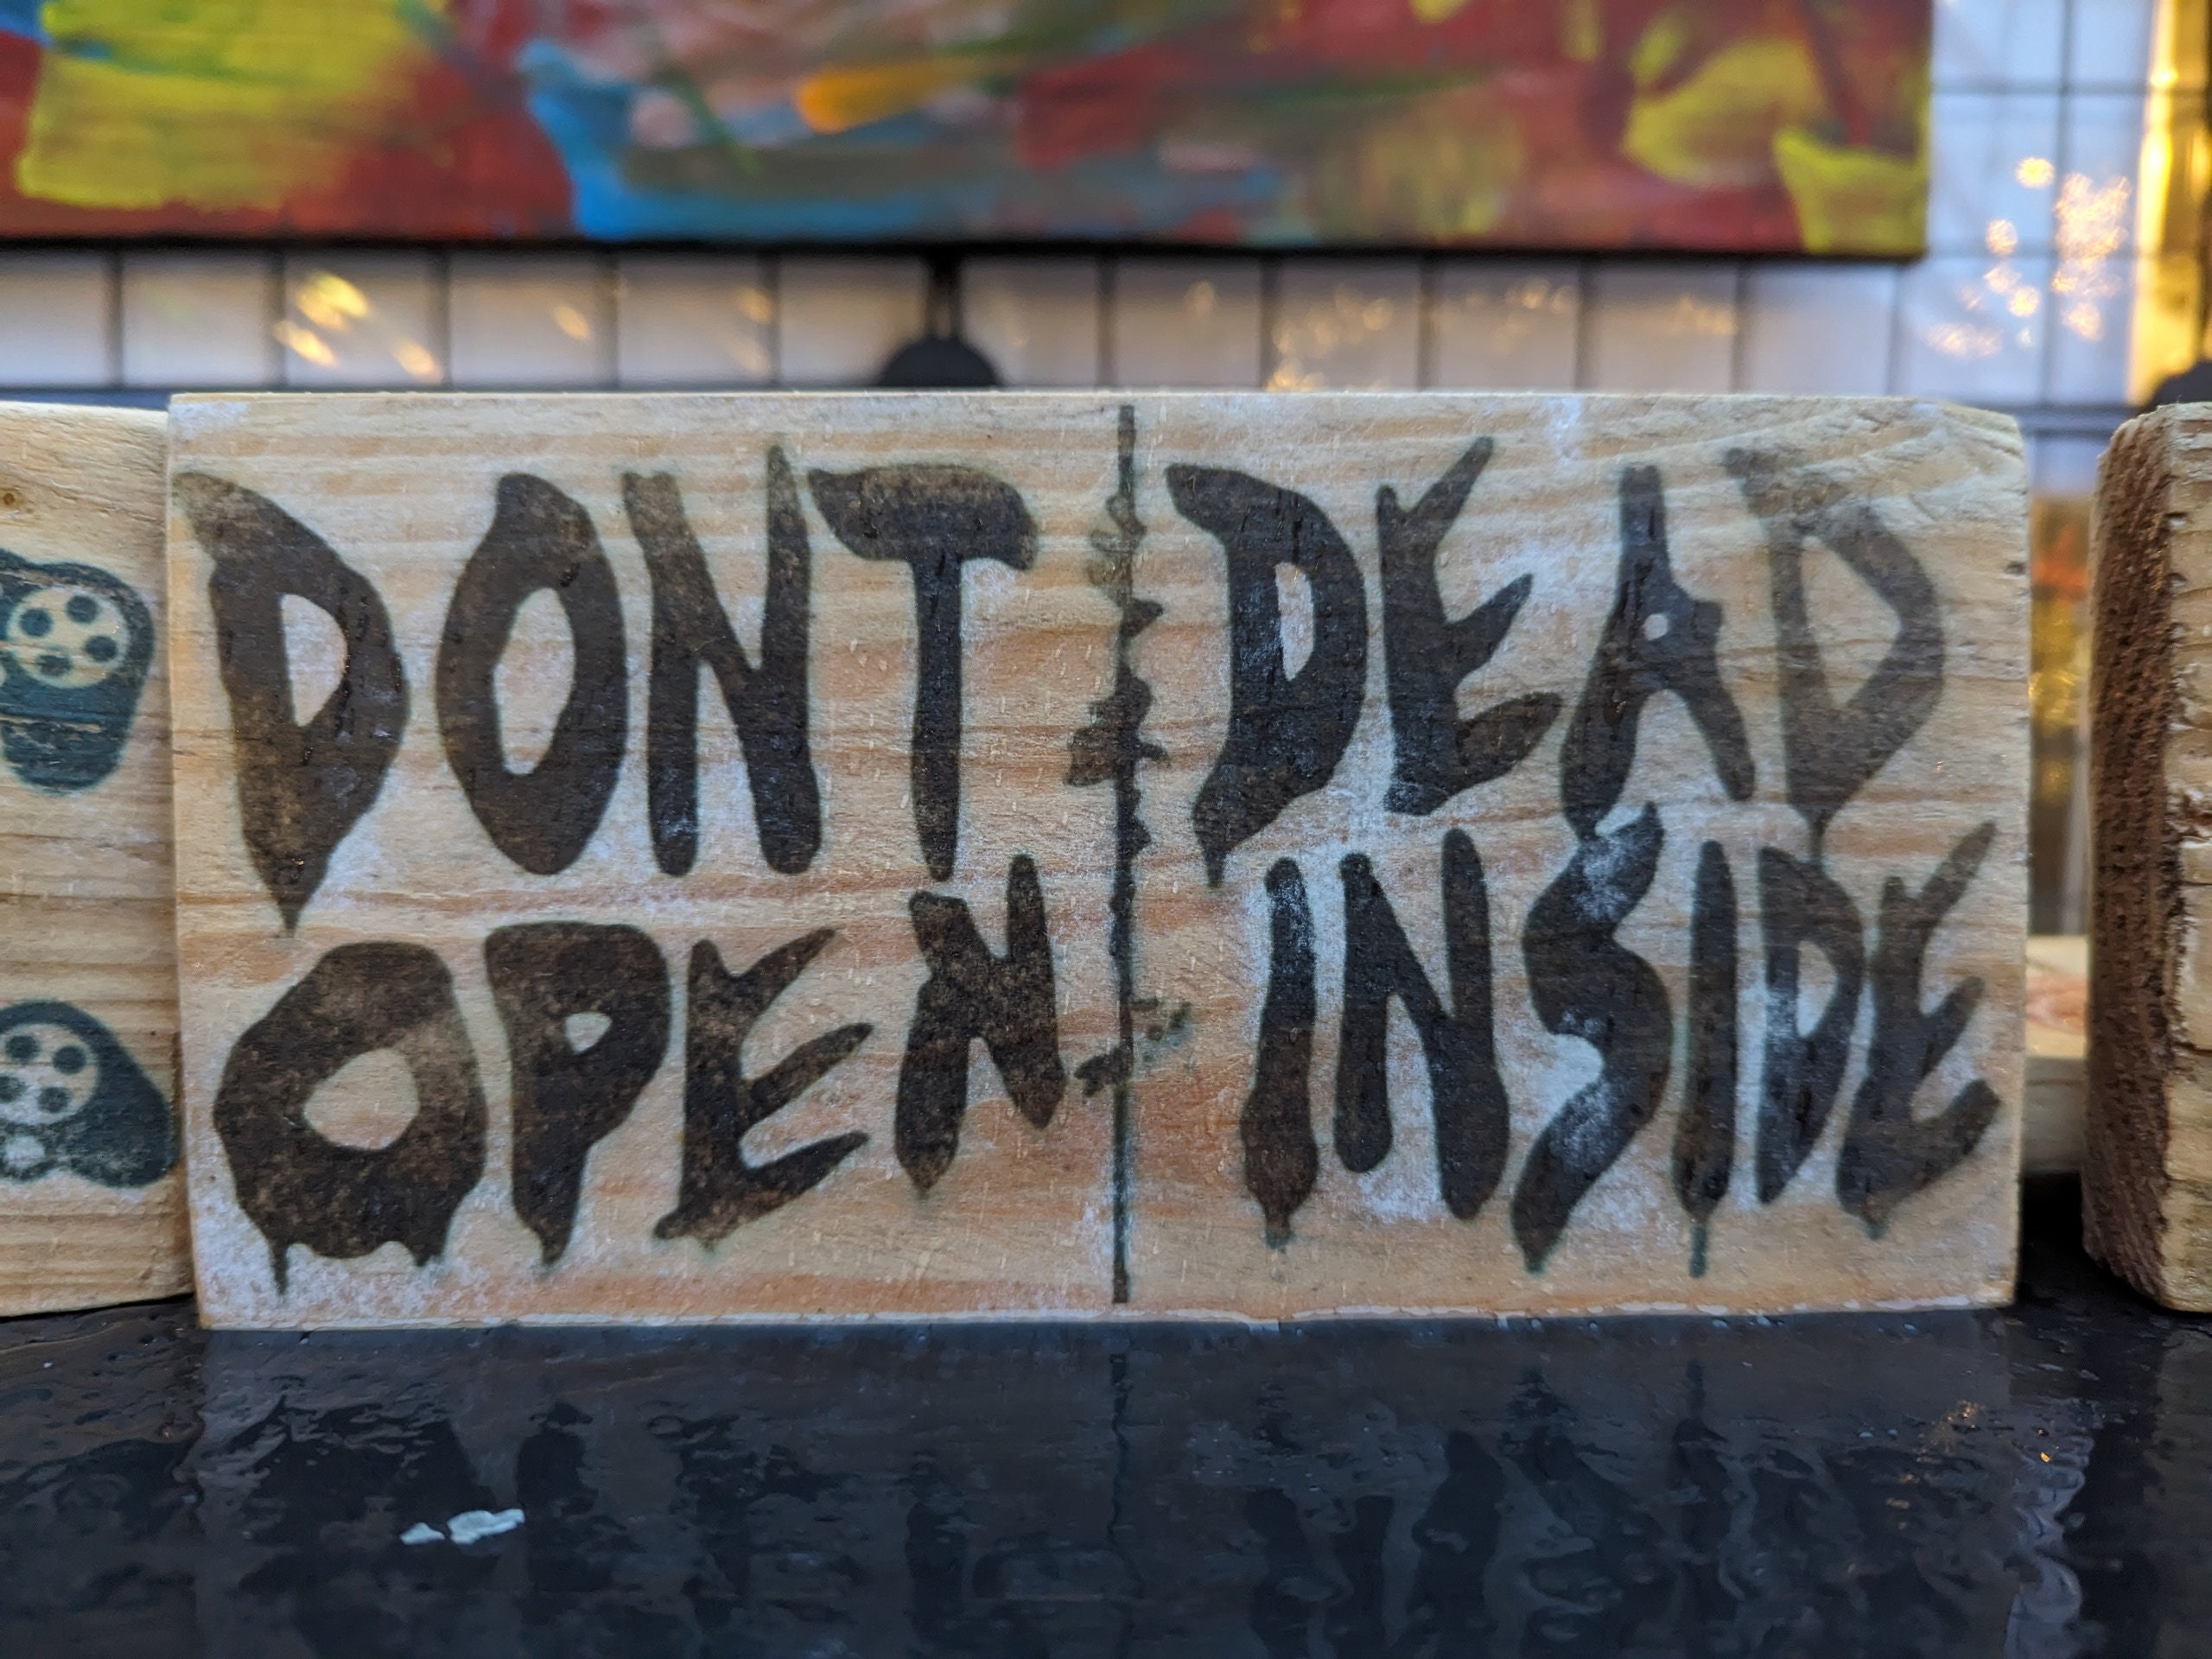 DONT
OPEN
DEAD
INSIDE